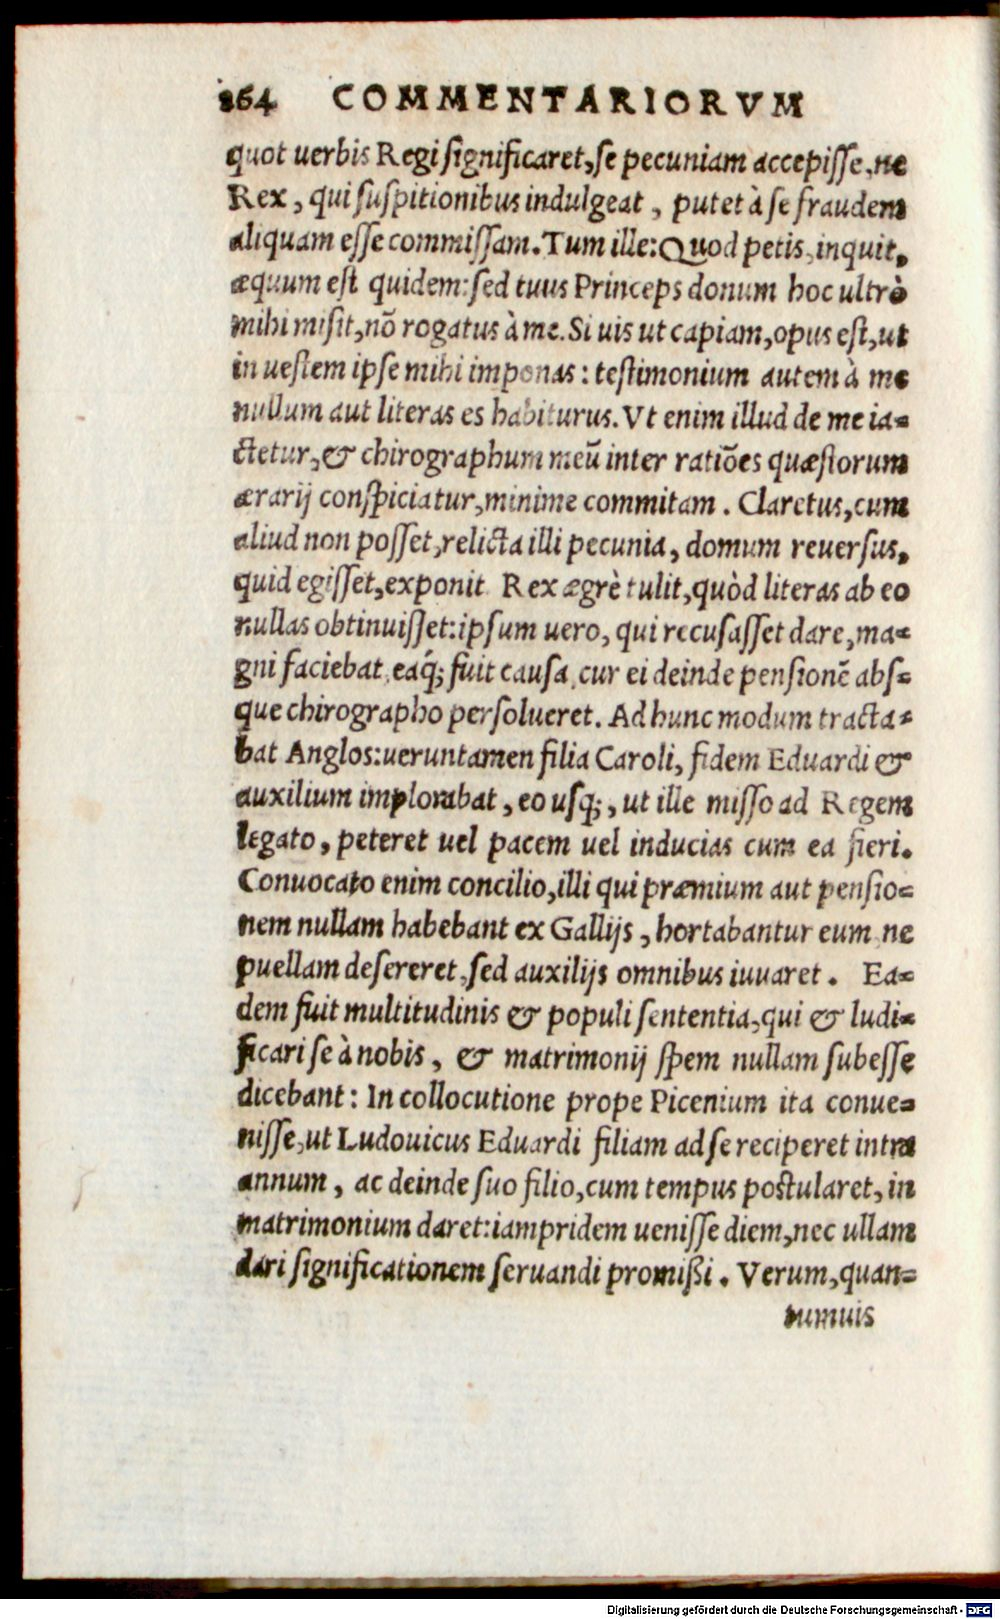 264 COMMENTARIORVM
quot uerbis Regi significaret, se pecuniam accepisse, ne
Rex, qui suspitionibus indulgeat, putet à se fraudem
aliquam esse commissam. Tum ille: Quod petis, inquit,
æquum est quidem: sed tuus Princeps donum hoc ultrò
mihi misit, nõ rogatus à me. Si uis ut capiam, opus est, ut
in uestem ipse mihi imponas: testimonium autem à me
nullum aut literas es habiturus. Vt enim illud de me ia-
ctetur, & chirographum meũ inter ratiões quæstorum
ærarij conspiciatur, minime commitam. Claretus, cum
aliud non posset, relicta illi pecunia, domum reuersus,
quid egisset, exponit. Rex ægrè tulit, quòd literas ab eo
nullas obtinuisset: ipsum uero, qui recusasset dare, ma-
gni faciebat, eaq́; fuit causa, cur ei deinde pensionẽ abs-
que chirographo persolueret. Ad hunc modum tracta-
bat Anglos: ueruntamen filia Caroli, fidem Eduardi &
auxilium implorabat, eo usq;, ut ille misso ad Regem
legato, peteret uel pacem uel inducias cum ea fieri.
Conuocato enim concilio, illi qui præmium aut pensio-
nem nullam habebant ex Gallijs, hortabantur eum ne
puellam desereret, sed auxilijs omnibus iuuaret. Ea-
dem fuit multitudinis & populi sententia, qui & ludi-
ficari se à nobis, & matrimonij spem nullam subesse
dicebant: In collocutione prope Picenium ita conue-
nisse, ut Ludouicus Eduardi filiam ad se reciperet intra
annum, ac deinde suo filio, cum tempus postularet, in
matrimonium daret: iampridem uenisse diem, nec ullam
dari significationem seruandi promißi. Verum, quan-
tumuis
Digitalisierung gefördert durch die Deutsche Forschungsgemeinschaft - DFG